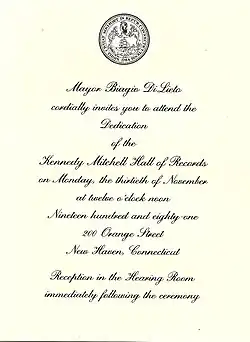 Mayor Biagio DiLieto
cordially invites you to attend the
Dedication
of the
Kennedy Mitchell Hall of Records
on Monday, the thirtieth of November
at twelve o'clock noon
Nineteen hundred and eighty-one
200 Orange Street
New Haven, Connecticut
Reception in the Hearing Room
immediately following the ceremony